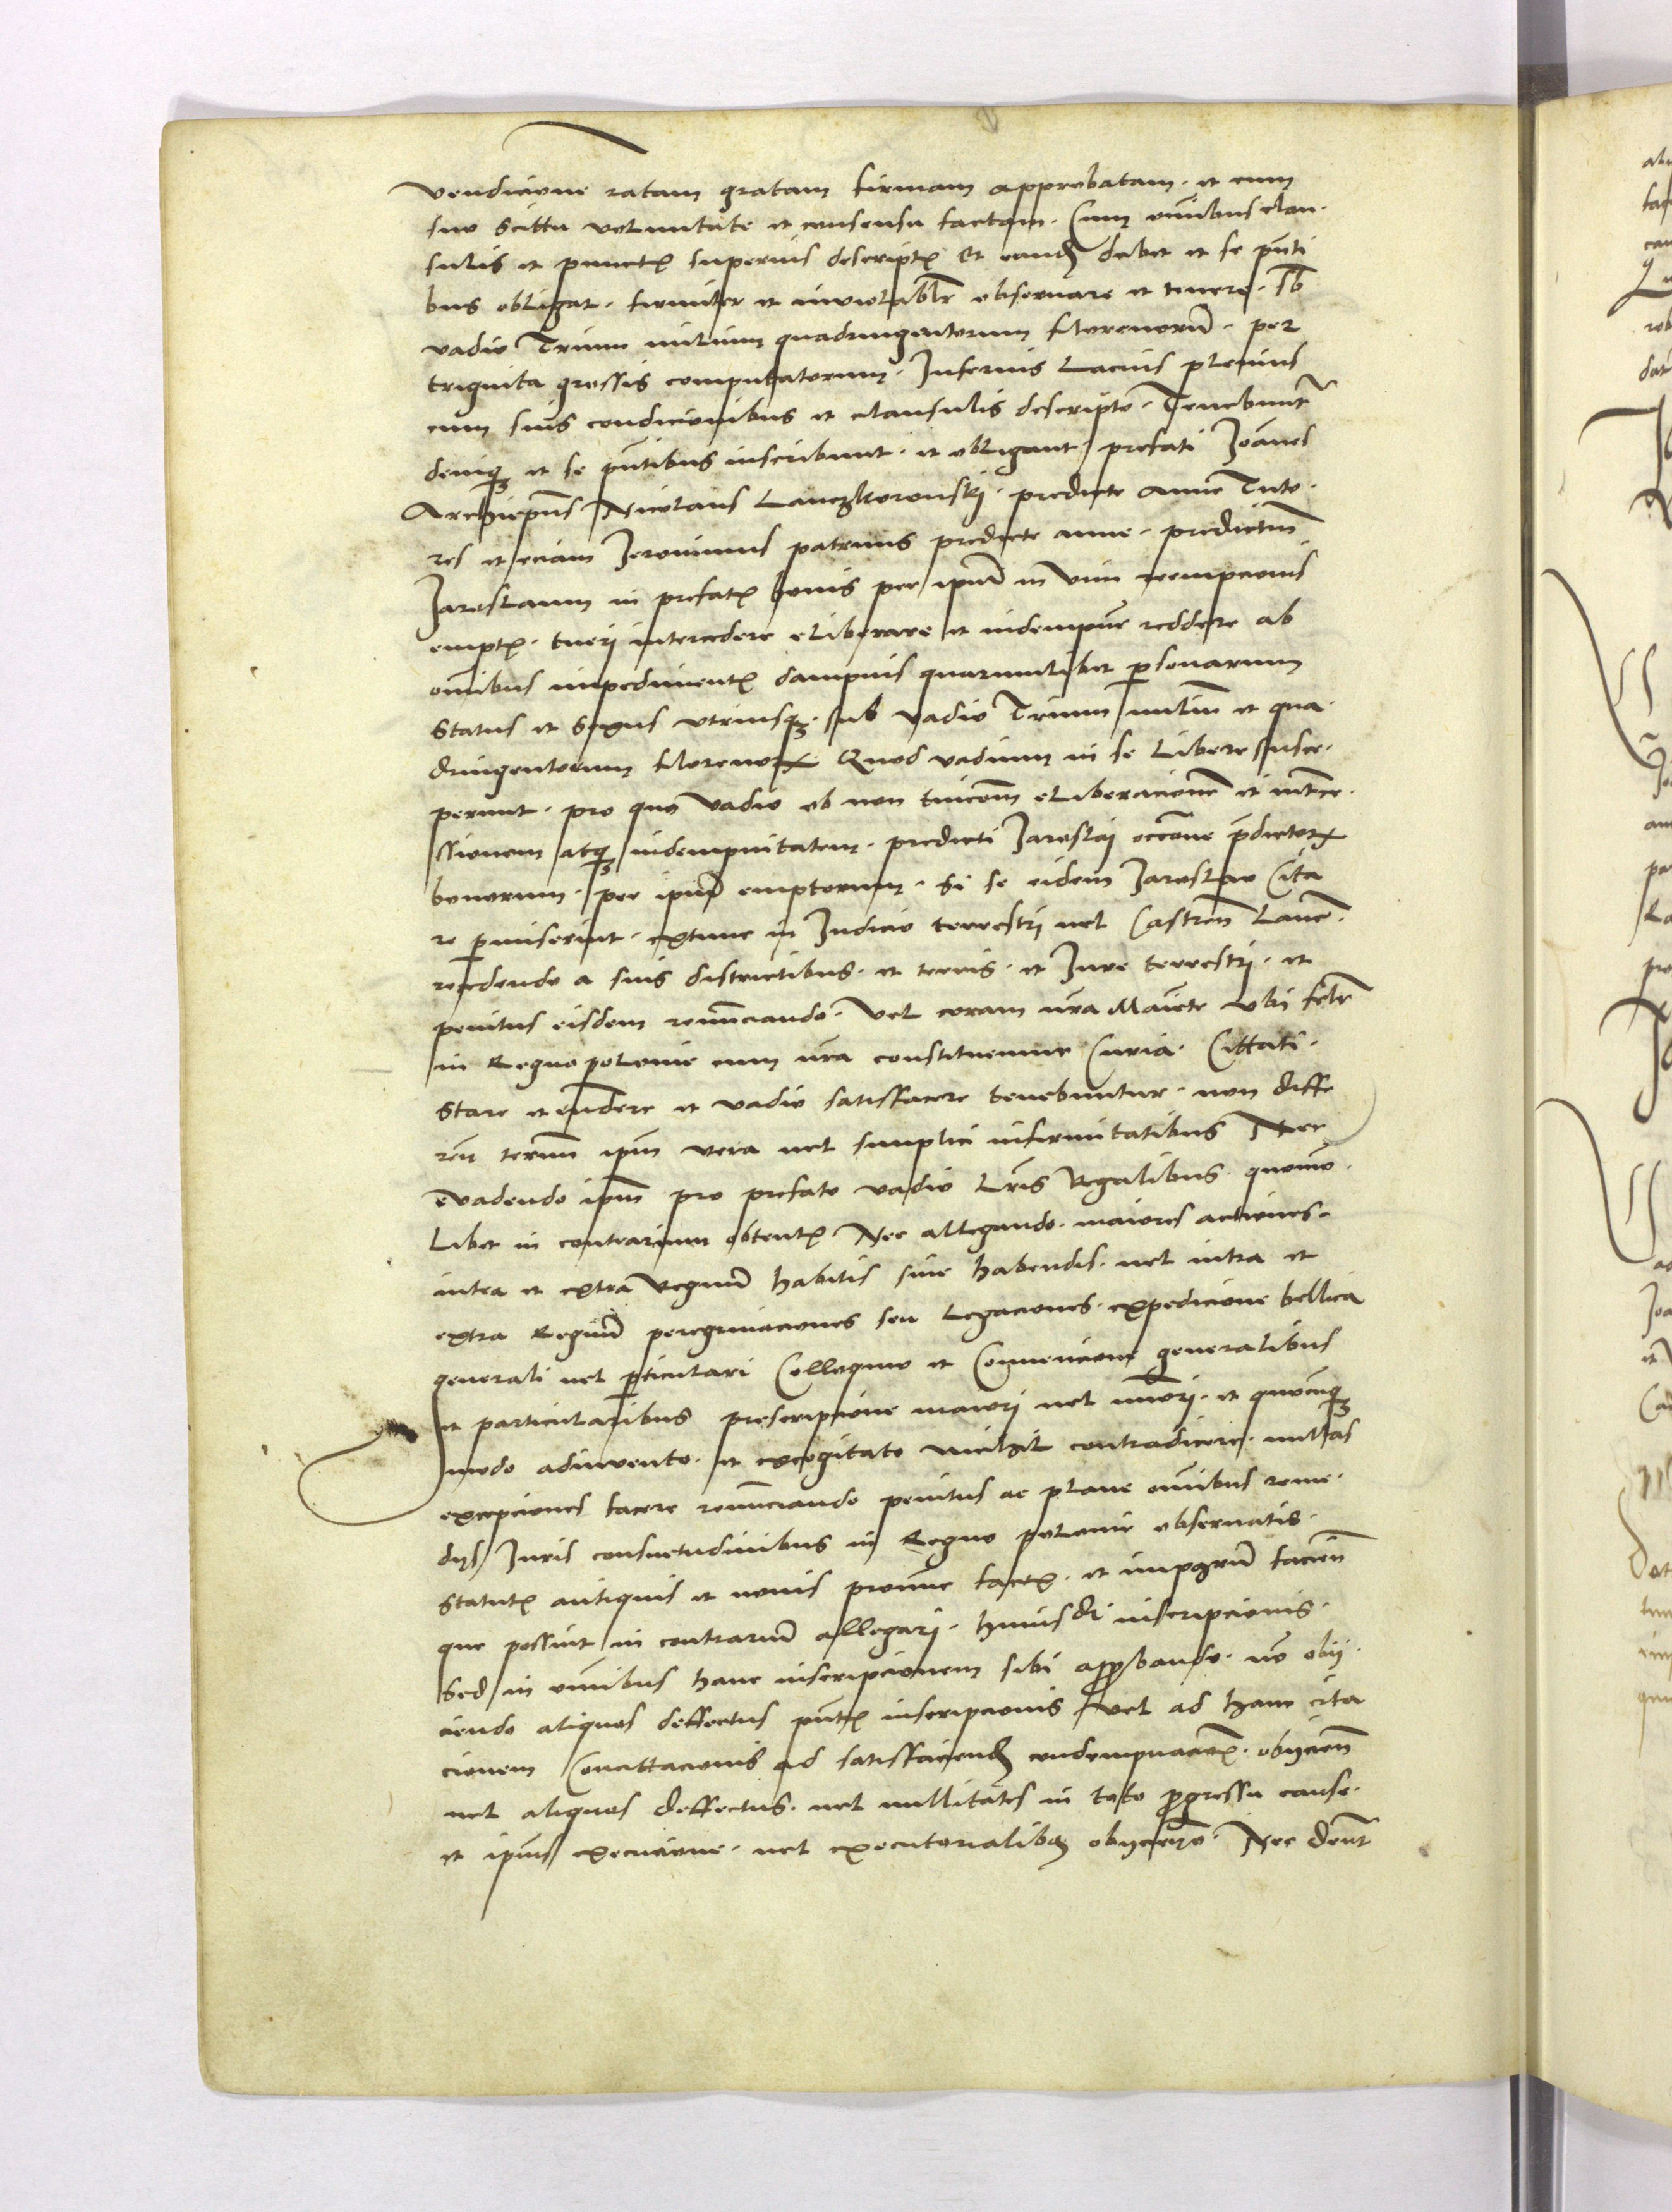 vendicione ratam gratam firmam approbatam. et cum
suo scittu voluntate et consensu factam. Cum oīnibus clau-
sulis et punctꝭ superius descriptꝭ Et eandꝫ debet et se pn̄ti
bus obligat. firmiter et inviolabilr̄ observare et tenere. sb̄
vadio Trium milium quadringentorum florenorū. per
triginta grossis computatorum. Inferius lacius plenius
cum suis condicionibus et clausulis descripto. Tenebunt̄
deniqꝫ et se pn̄tibus inscribunt. et obligant prefati Joān̄es
Archiepūs Nicolaus Lanczkoronskÿ. predicte Anne Tuto-
res et eciam Jeronimus patruus predicte anne. predictum̄
Jaroslaum in prefatꝭ bonis per ipum̄ in vim reempcionis
emptꝭ. tueri intercedere eliberare et indempn̄e reddere ab
omn̄ibus impedimentꝭ dampnis quarumlibet ꝑsonarum
Status et Sexus utriusqꝫ. sub vadio Trium milium̄ et qua-
dringentorum florenoꝝ Quod vadium in se libere susce-
perunt. pro quo vadio ob non tuicōm̄ eliberacionē et int̄ce-
ssionem atqꝫ indempnitatem. predicti Jaroslai occōne p̄dictoꝝ
bonorum. per ipum̄ emptorum. Si se eidem Jaroslao Cita
re ꝑmiserint. extunc in Judicio terrestri vel Castrēn̄ Lanc̄.
recedendo a suis districtibus. et terris. et Jure terrestrj. et
penitus eisdem renūnciando. Vel coram nr̄a Maiestate ubi fel̄r
in Regno polonie cum nr̄a constituemur Curia. Cittati.
Stare et rn̄dere et vadio satisfacere tenebuntur. non diffe
ren̄ termin̄ ipm̄ vera vel simplici infirmitatibus Nec
evadendo ipm̄ pro prefato vadio lr̄is Regalibus. quomō-
libet in contrarium obtentꝭ Nec allegando. maiores actiones.
intra et extra Regnum̄ habitis sive habendis. vel intra et
extra Regnum̄ peregrinaciones seu Legaciones. expedicione bellica
generali vel ꝑticulari Colloquio et Convencione generalibus
et particularibus prescripcione maiori vel mīnori. et quocūqꝫ
modo adinvento. et excogitato nichil contradicere. nullas
excepciones facere renūnciando penitus ac plane om̄ibus reme-
dijs Juris consuetudinibus in Regno polonie observatis.
Statutꝭ antiquis et novis pronunc factꝭ. et imposterum̄ faciēn̄
que possint in contrarium̄ allegari. huiusdi inscripcionis.
Sed in om̄ibus hanc inscripcionem sibi aꝓbando. nō obij-
ciendo aliquos deffectus pn̄tꝭ inscripcionis vel ad hanc cita
cionem Concittacionis ad satisfaciendꝫ condempnacōꝭ. obijcien̄
vel aliquos deffectus. vel nullitates in toto ꝓgressu cause.
et ipīus execucione. vel executorialibꝫ obijcien̄do. Nec dēnt